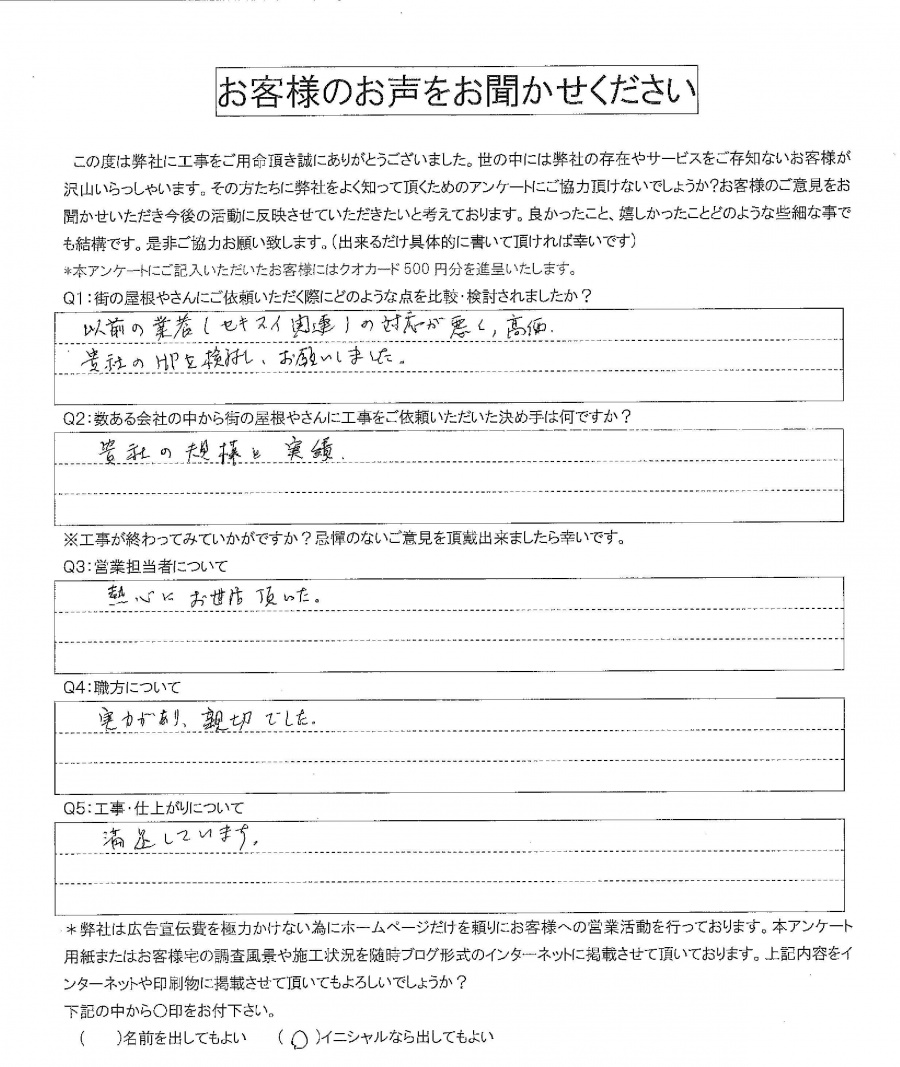 お客様のお声をお聞かせください
この度は弊社に工事をご用命頂き誠にありがとうございました。世の中には弊社の存在やサービスをご存知ないお客様が
沢山いらっしゃいます。その方たちに弊社をよく知って頂くためのアンケートにご協力頂けないでしょうか?お客様のご意見をお
聞かせいただき今後の活動に反映させていただきたいと考えております。良かったこと、嬉しかったことどのような些細な事で
も結構です。是非ご協力お願い致します。(出来るだけ具体的に書いて頂ければ幸いです)
*本アンケートにご記入いただいたお客様にはクオカード500円分を進呈いたします。
Q1:街の屋根やさんにご依頼いただく際にどのような点を比較・検討されましたか?
以前の業者(セキスイ関連)の対応が悪く,高価.
貴社のHPを検討し、お願いしました。
Q2:数ある会社の中から街の屋根やさんに工事をご依頼いただいた決め手は何ですか?
貴社の規模と実績.
※工事が終わってみていかがですか?忌憚のないご意見を頂戴出来ましたら幸いです。
Q3:営業担当者について
熱心にお世話頂いた。
Q4:職方について
実力があり、親切でした。
Q5:工事・仕上がりについて
満足しています。
*弊社は広告宣伝費を極力かけない為にホームページだけを頼りにお客様への営業活動を行っております。本アンケート
用紙またはお客様宅の調査風景や施工状況を随時ブログ形式のインターネットに掲載させて頂いております。上記内容をイ
ンターネットや印刷物に掲載させて頂いてもよろしいでしょうか?
下記の中から〇印をお付下さい。
(　　)名前を出してもよい　　(〇)イニシャルなら出してもよい